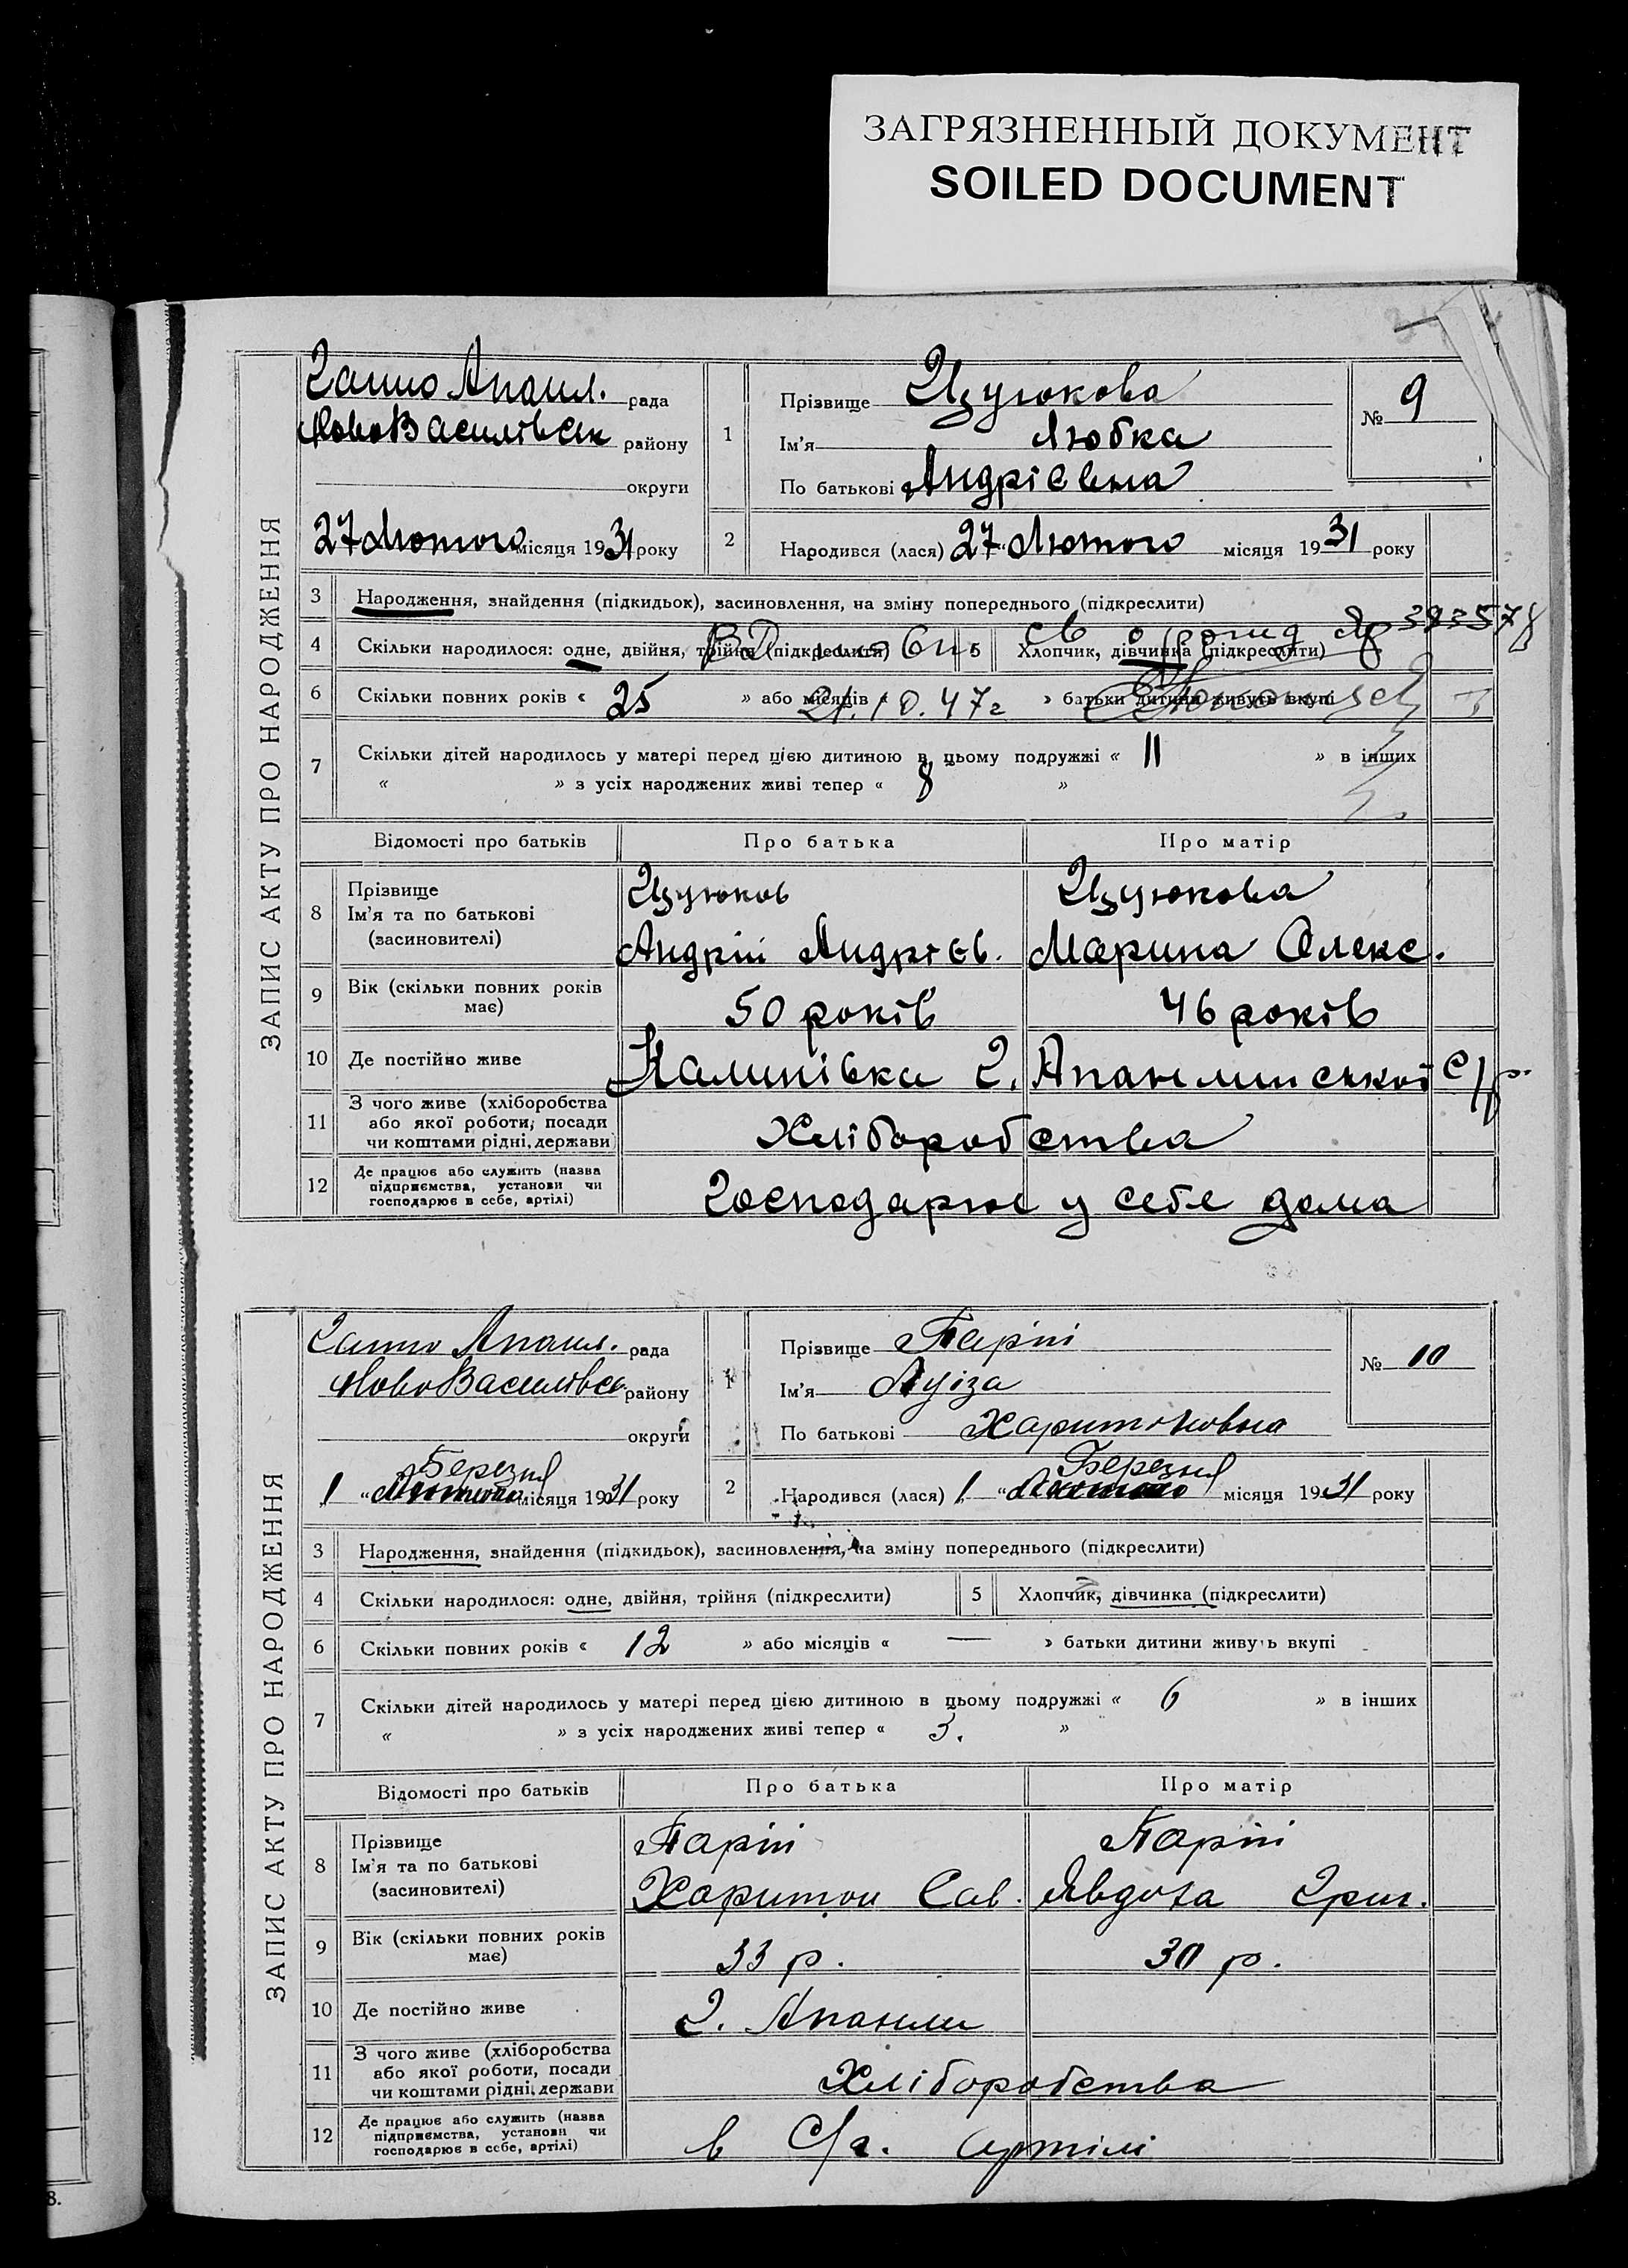 ЗАГРЯЗНЕННЫЙ ДОКУМЕНТ
SOILED DOCUMENT
ЗАПИС АКТУ ПРО НАРОДЖЕННЯ
Ганно Апанл. рада
НовоВасилівськ району
округи
27 Лютого місяця 1931 року
1
Прізвище Цуркова
Ім'я Любка
По батькові Андрієвна
№ 9
2
Народився (лася) 27 „ Лютого місяця 1931 року
3 Народження, знайдення (підкидьок), засиновлення, на зміну попереднього (підкреслити)
4 Скільки народилося: одне, двійня, трійня (підкреслити) 5 Хлопчик, дівчинка (підкреслити)
св о рожд 393578
6 Скільки повних років « 25 » або місяців « » батьки дитини живуть вкупі
21.10.47г
7 Скільки дітей народилось у матері перед цією дитиною в цьому подружжі « 11 » в інших
« » з усіх народжених живі тепер « 8 »
Відомості про батьків Про батька Про матір
8 Прізвище
Ім'я та по батькові
(засиновителі)
Андрій Андрієв. Марина Олекс.
9 Вік (скільки повних років має) 50 років 46 років
10 Де постійно живе Калинівка Г. Апанлинської с/р.
11 З чого живе (хліборобства або якої роботи, посади чи коштами рідні, держави) Хліборобства
12 Де працює або служить (назва підприємства, установи чи господарює в себе, артілі) Господарює у себе дома
ЗАПИС АКТУ ПРО НАРОДЖЕННЯ
Ганно Апанл. рада
НовоВасилівсь. району
округи
1 " Березня місяця 1931 року
1
Прізвище Парпі
Ім'я Луіза
По батькові Харитоновна
№ 10
2
Народився (лася) 1 „ " Березня місяця 1931 року
3 Народження, знайдення (підкидьок), засиновлення, на зміну попереднього (підкреслити)
4 Скільки народилося: одне, двійня, трійня (підкреслити) 5 Хлопчик, дівчинка (підкреслити)
6 Скільки повних років « 12 » або місяців « — » батьки дитини живуть вкупі
7 Скільки дітей народилось у матері перед цією дитиною в цьому подружжі « 6 » в інших
« » з усіх народжених живі тепер « 3. »
Відомості про батьків Про батька Про матір
8 Прізвище
Ім'я та по батькові
(засиновителі)
Парпі Парпі
Харитон Сав. Явдоха Григ.
9 Вік (скільки повних років має) 33 р. 30 р.
10 Де постійно живе Г. Апанли
11 З чого живе (хліборобства або якої роботи, посади чи коштами рідні, держави) Хліборобства
12 Де працює або служить (назва підприємства, установи чи господарює в себе, артілі) в С/г. Артілі
8.